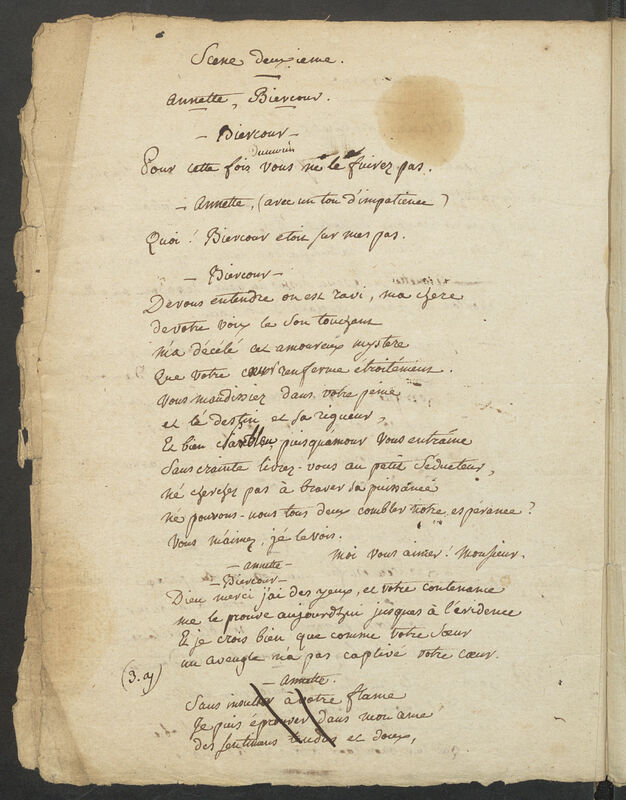 Scene deuxieme.
annette, Biercour.
- Biercour -
Pour cette fois vous ne le fuirez pas.
- annette, (avec un ton d'impatience)
Quoi! Biercour etoit sur mes pas.
- Biercour -
De vous entendre on est ravi, ma chere
de votre voix le son touchant
m'a décélé cet amoureux mystere
Que votre cœur renferme etroitément.
Vous maudissiez dans votre peine
et le destin et sa rigueur,
Et bien parbleu, puisqu'amour vous entraîne
Sans crainte livrez-vous au petit Séducteur,
né cherchez pas à braver sa puissance
né pouvons-nous tous deux combler notre espérance?
Vous m'aimez, je le vois.
- annette -
moi vous aimer! Monsieur.
- Biercour -
Dieu merci j'ai des yeux, et votre contenance
me le prouve aujourdhui jusques à l'évidence
Et je crois bien que comme votre Sœur
un aveugle n'a pas captivé votre cœur.
- annette.
(3. a)
Sans insulter à votre flame
Je puis éprouver dans mon ame
des sentimens tendres et doux,